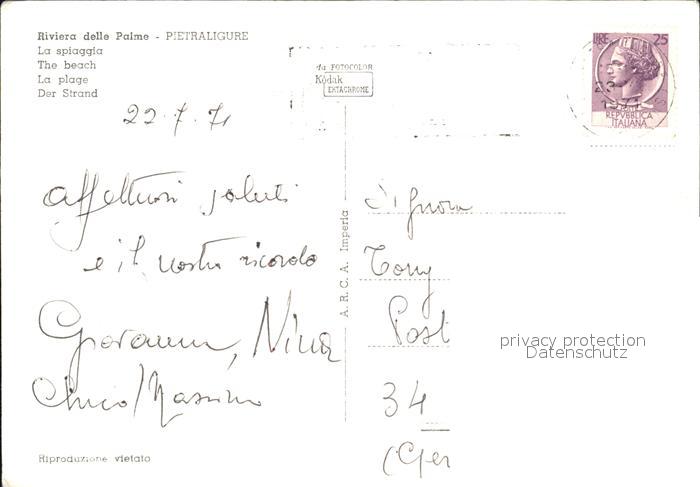 Riviera delle Palme - PIETRALIGURE
La spiaggia
The beach
La plage
Der Strand
da FOTOCOLOR
Kodak
EKTACHROME
LIRE 25
REPVBBLICA
ITALIANA
23
1971
22.7.71
Affettuosi saluti
e il nostro ricordo
Giovanni, Nina
Massimo
A.R.C.A. Imperia
Signora
Tony
Post
34
(Ger
privacy protection
Datenschutz
Riproduzione vietata